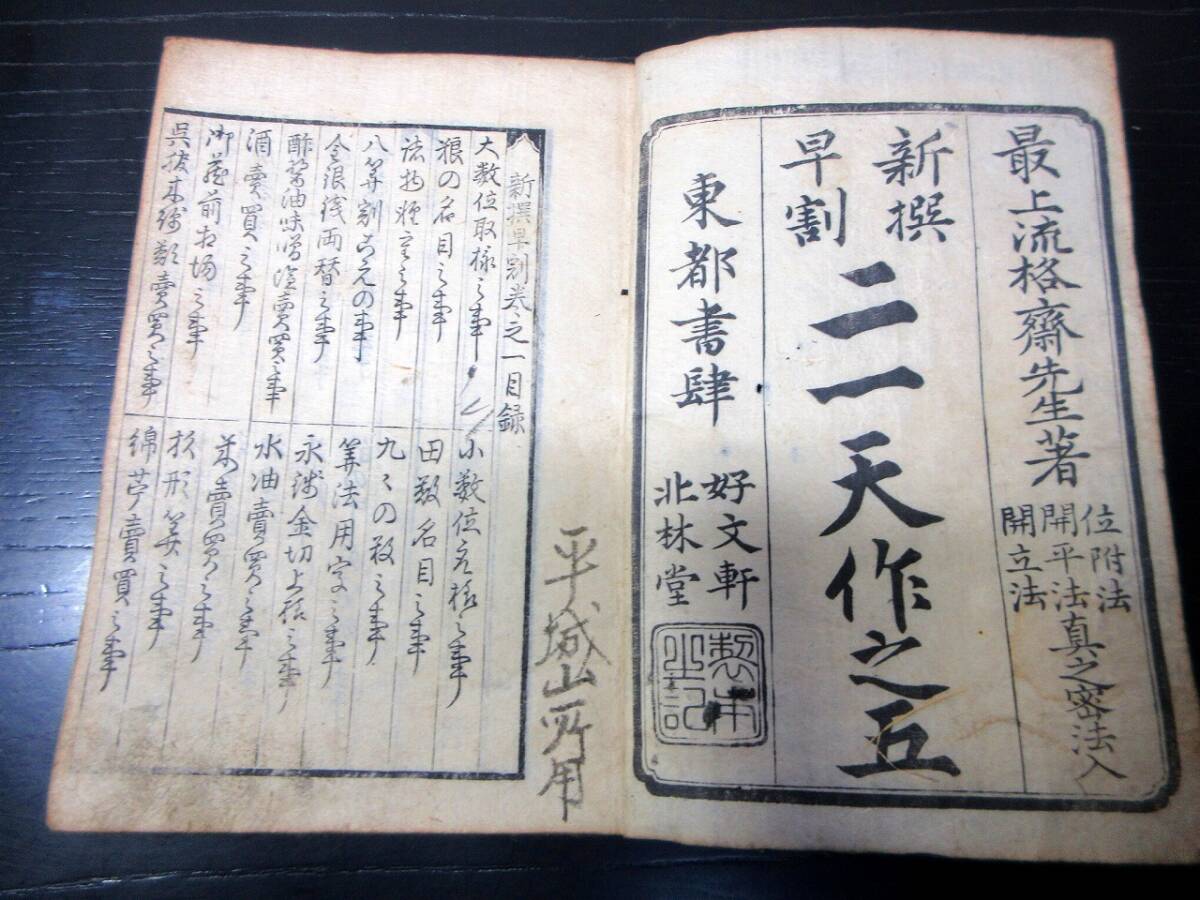 最上流格齋先生著
位附法
開平法真之密法入
開立法
新撰
早割
二一天作之五
東都書肆
好文軒
北林堂
製本之記
新撰早割巻之一目録
大数位取様之事
小数位之様之事
粮の名目之事
田数名目之事
九々の数之事
八算割声の事
算法用字之事
金銀銭両替之事
永銭金切上様之事
酢醤油味噌塩賣買之事
水油賣買之事
酒賣買之事
米賣買之事
御蔵前相場之事
杉形算之事
呉服木綿類賣買之事
綿苧賣買之事
平城山所用